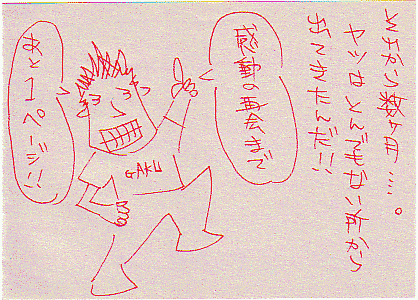 から数ヶ月....。
ヤツはとんでもない所から
出てきたんだ!!
感動の再会まで
あと1ページ!!
GAKU